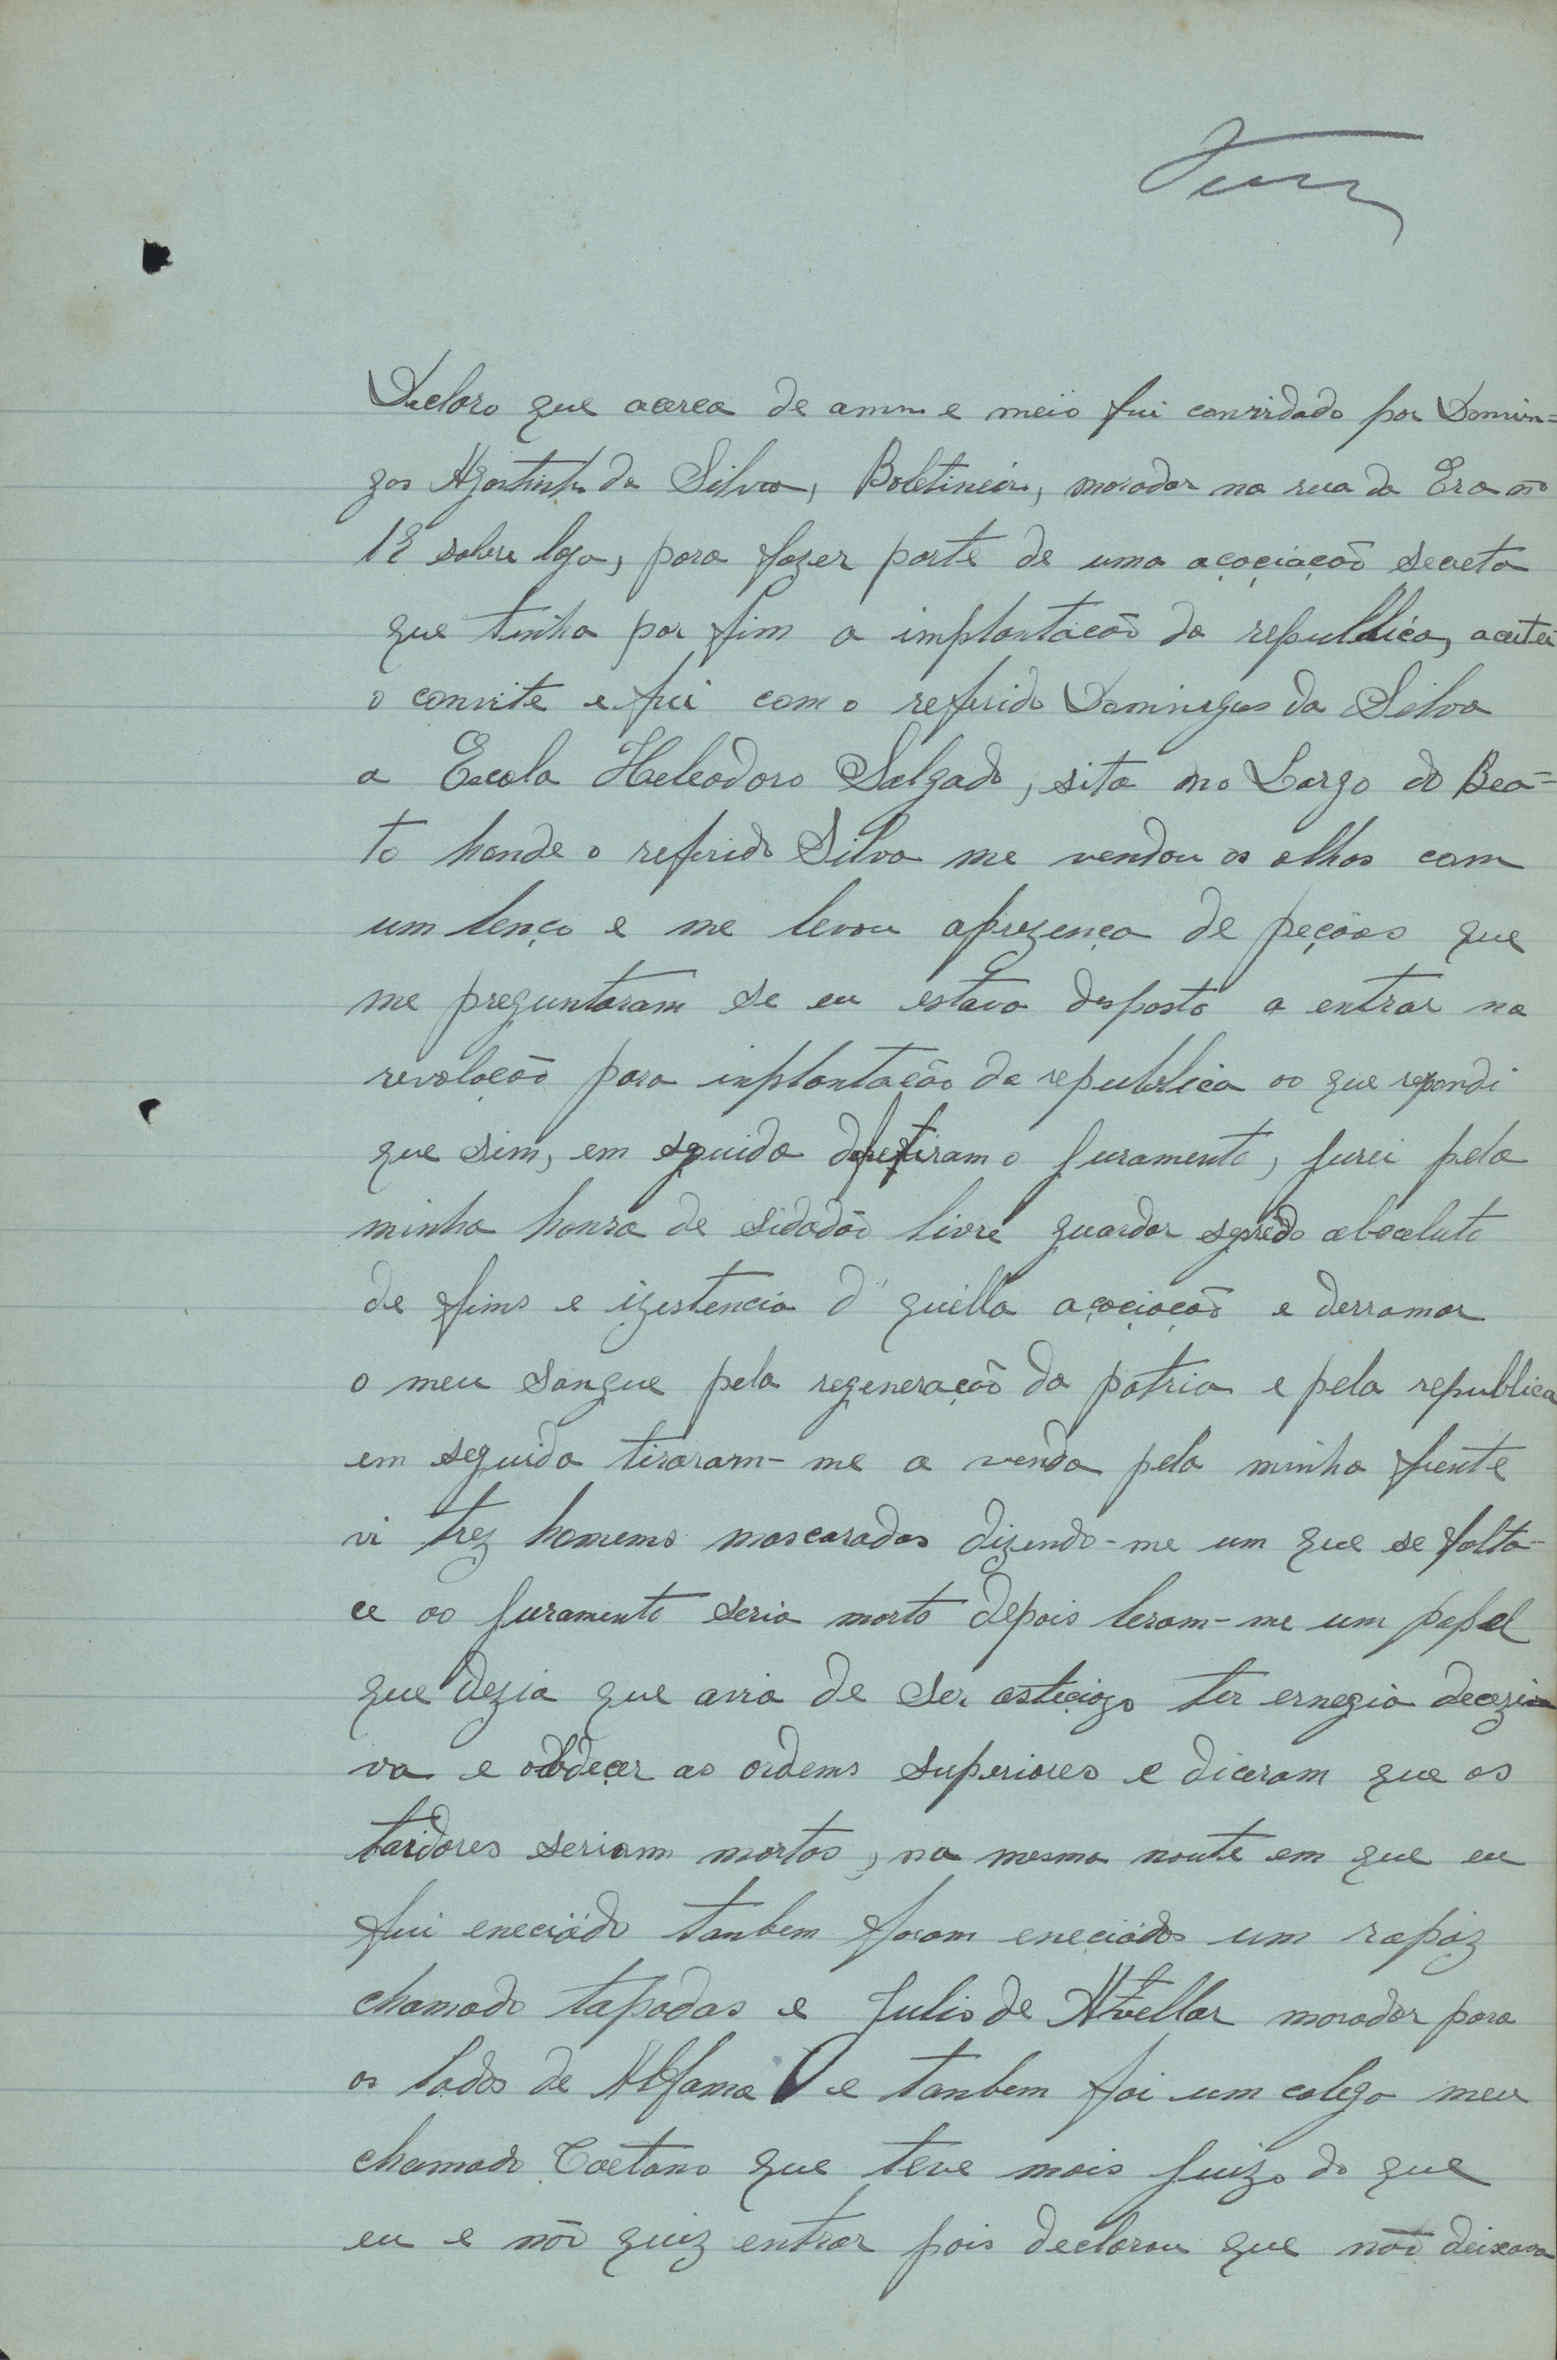 Declaro que acerca de anno e meio fui convidado por Domin=
gos Agostinho da Silva, Boletineiro, morador na rua da Era nº
12 sobre loja, para fazer parte de uma açociação secreta
que tinha por fim a implantacão da republica, aceitei
o convite e fui com o referido Domingos da Silva
a Escola Heleodoro Salgado, sita no Largo do Bea=
to honde o referido Silva me vendou os olhos com
um lenço e me levou aprezença de peçoas que
me preguntaram se eu estava desposto a entrar na
revolocão para inplantacão da republica ao que repondi
que sim, em seguida o juramento, jurei pela
minha honra de sidadão livre guardar segredo aboceluto
de fims e izestencia d'quella açociacão e derramar
o meu sangue pela regeneração da patria e pela republica
em seguida tiraram-me a venda pela minha frente
vi trez homems mascarados dizendo-me um que se falta-
ce ao juramento seria morto depois leram-me um papel
que dezia que avia de ser astuciozo ter ernegia decezi
va e obdecer as ordems superiores e diceram que os
taridores seriam mortos, na mesma noute em que eu
fui eneciádo tanbem foram eneciádos um rapáz
chamado tapadas e Julio de Avellar morador para
os lados de Alfama e tanbem foi um colega meu
chamado Caetano que teve mais juizo do que
eu e não quiz entrar pois declarou que não deixava